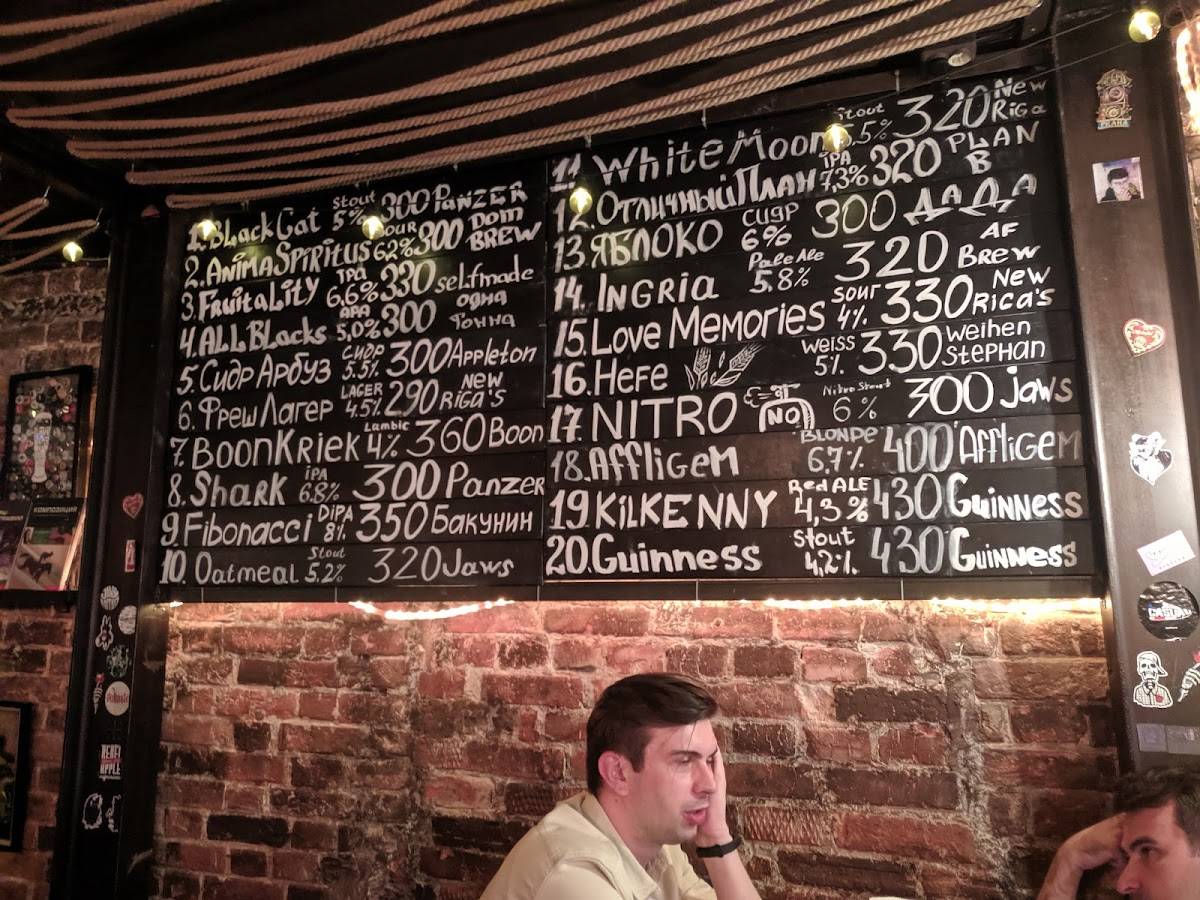 1. BLackCat Stout 5% 300 PANZER
2. ANIMA SPIRITUS SOUR 6.2% 300 DOM BREW
3. FRUITALITY IPA 6.6% 330 selfmade
4. ALL BLacks APA 5,0% 300 ОДНА ТОННА
5. Сидр Арбуз СИДР 5.5% 300 Appleton
6. Фреш Лагер LAGER 4.5% 290 NEW RIGA'S
7. BOON KRIEK Lambic 4% 360 Boon
8. Shark IPA 6.8% 300 Panzer
9. Fibonacci DIPA 8% 350 БАКУНИН
10. Oatmeal Stout 5.2% 320 Jaws
11. White Moon Stout 5,5% 320 New RIGA
12. ОТЛИЧНЫЙ ПЛАН IPA 7,3% 320 PLAN B
13. ЯБЛОКО СИДР 6% 300 ДАДА
14. INGRIA Pale Ale 5.8% 320 AF Brew
15. Love Memories Sour 4% 330 New RIGA's
16. HEFE WEISS 5% 330 Weihen STEPHAN
17. NITRO NO Nitro Stout 6% 300 jaws
18. AffligeM BLONDE 6.7% 400 AffligeM
19. KILKENNY Red ALE 4,3% 430 Guinness
20. Guinness Stout 4,2% 430 Guinness
PRAHA
КОМПОЗИЦИЯ
REBEL APPLE